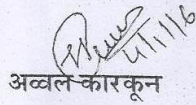 4/1/16
अव्वल-कारकून